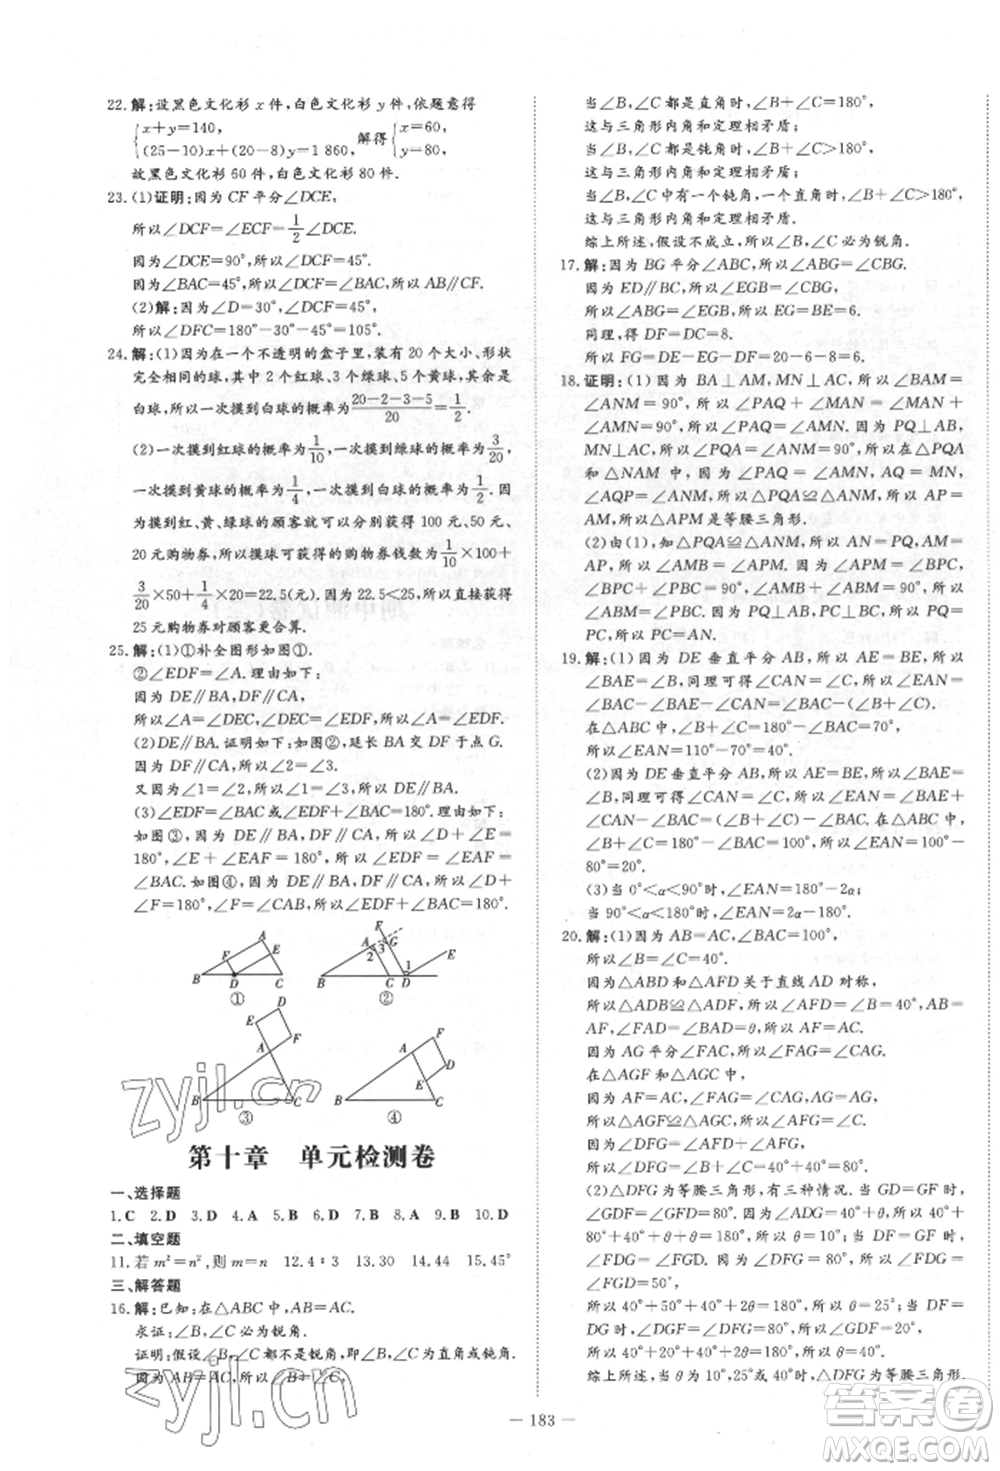 22. 解:设黑色文化衫 x 件,白色文化衫 y 件,依题意得
{x+y=140, (25-10)x+(20-8)y=1 860} 解得 {x=60, y=80.
故黑色文化衫 60 件,白色文化衫 80 件.
23. (1)证明:因为 CF 平分∠DCE,
所以∠DCF=∠ECF=1/2∠DCE.
因为∠DCE=90°,所以∠DCF=45°.
因为∠BAC=45°,所以∠DCF=∠BAC,所以 CF∥AB.
(2)解:因为∠D=30°,∠DCF=45°,
所以∠DFC=180°-30°-45°=105°.
24. 解:(1)因为在一个不透明的盒子里装有 20 个大小、形状
完全相同的球,其中 2 个红球、3 个绿球、5 个黄球,其余是
白球,所以一次摸到白球的概率为(20-2-3-5)/20=1/2.
(2)一次摸到红球的概率为1/10,一次摸到绿球的概率为3/20,
一次摸到黄球的概率为1/4,一次摸到白球的概率为1/2.因为
摸到红、黄、绿球的顾客就可以分别获得 100 元、50 元、
20 元购物券,所以摸球可获得的购物券钱数为1/10×100+
3/20×50+1/4×20=22.5(元).因为 22.5<25,所以获得
25 元购物券对顾客更合算.
25. 解:(1)①补全图形如图①.
②∠EDF=∠A.理由如下:
因为 DE∥BA,DF∥CA,
所以∠A=∠DEC,∠DEC=∠EDF,所以∠A=∠EDF.
(2)DE∥BA.证明如下:如图②,延长 BA 交 DF 于点 G.
因为 DF∥CA,所以∠2=∠3.
又因为∠1=∠2,所以∠1=∠3,所以 DE∥BA.
(3)∠EDF=∠BAC或∠EDF+∠BAC=180°.理由如下:
如图③,因为 DE∥BA,DF∥CA,所以∠D+∠E=
180°,∠E+∠EAF=180°,所以∠EDF=∠EAF=
∠BAC.如图④,因为 DE∥BA,DF∥CA,所以∠D+
∠F=180°,∠F=∠CAB,所以∠EDF+∠BAC=180°.
A F E B D C ①
A 2 3 G F E 1 B C D ②
E D F A B C ③
F E D A B C ④
第十章 单元检测卷
一、选择题
1. C 2. D 3. D 4. A 5. B 6. D 7. B 8. A 9. B 10. D
二、填空题
11. 若 m²=n²,则 m=n 12. 4∶3 13. 30 14. 44 15. 45°
三、解答题
16. 解:已知:在△ABC 中,AB=AC.
求证:∠B,∠C 必为锐角.
证明:假设∠B,∠C 不是锐角,即∠B,∠C 为直角或钝角.
因为 AB=AC,所以∠B=∠C.
当∠B,∠C 都是直角时,∠B+∠C=180°,
这与三角形内角和定理相矛盾;
当∠B,∠C 都是钝角时,∠B+∠C>180°,
这与三角形内角和定理相矛盾;
当∠B,∠C 中有一个钝角,一个直角时,∠B+∠C>180°,
这与三角形内角和定理相矛盾.
综上所述,假设不成立,所以∠B,∠C 必为锐角.
17. 解:因为 BG 平分∠ABC,所以∠ABG=∠CBG,
因为 ED∥BC,所以∠EGB=∠CBG,
所以∠ABG=∠EGB,所以 EG=BE=6.
同理,得 DF=DC=8.
所以 FG=DE-EG-DF=20-6-8=6.
18. 证明:(1)因为 BA⊥AM,MN⊥AC,所以∠BAM=
∠ANM=90°,所以∠PAQ+∠MAN=∠MAN+
∠AMN=90°,所以∠PAQ=∠AMN.因为 PQ⊥AB,
MN⊥AC,所以∠PQA=∠ANM=90°.在△PQA
和△NAM 中,因为∠PAQ=∠AMN,AQ=MN,
∠AQP=∠MNA,所以△PQA≌△ANM,所以 AP=
AM,所以△APM 是等腰三角形.
(2)由(1)知,△PQA≌△ANM,所以 AN=PQ,AM=
AP,所以∠AMB=∠APM.因为∠APM=∠BPC,
∠BPC+∠PBC=90°,∠AMB+∠ABM=90°,所以
∠ABM=∠PBC.因为 PQ⊥AB,PC⊥BC,所以
PQ=PC,所以 PC=AN.
19. 解:(1)因为 DE 垂直平分 AB,所以 AE=BE,所以
∠BAE=∠B,同理可得∠CAN=∠C,所以∠EAN=
∠BAC-∠BAE-∠CAN=∠BAC-(∠B+∠C).
在△ABC 中,∠B+∠C=180°-∠BAC=70°,
所以∠EAN=110°-70°=40°.
(2)因为 DE 垂直平分 AB,所以 AE=BE,所以∠BAE=
∠B,同理可得∠CAN=∠C,所以∠EAN=∠BAE+
∠CAN-∠BAC=(∠B+∠C)-∠BAC.在△ABC 中,
∠B+∠C=180°-∠BAC=100°,所以∠EAN=100°-
80°=20°.
(3)当 0°<α<90°时,∠EAN=180°-2α;
当 90°<α<180°时,∠EAN=2α-180°.
20. 解:(1)因为 AB=AC,∠BAC=100°,
所以∠B=∠C=40°.
因为△ABD 和△AFD 关于直线 AD 对称,
所以△ADB≌△ADF,所以∠AFD=∠B=40°,AB=
AF,∠FAD=∠BAD=θ,所以 AF=AC.
因为 AG 平分∠FAC,所以∠FAG=∠CAG.
在△AGF 和△AGC 中,
因为 AF=AC,∠FAG=∠CAG,AG=AG,
所以△AGF≌△AGC,所以∠AFG=∠C.
因为∠DFG=∠AFD+∠AFG,
所以∠DFG=∠B+∠C=40°+40°=80°.
(2)△DFG 为等腰三角形,有三种情况.当 GD=GF 时,
所以∠FDG=∠DFG=80°.因为∠ADG=40°+θ,所以 40°+
80°+40°+θ+θ=180°,所以 θ=10°;当 DF=GF 时,
∠FDG=∠FGD.因为∠DFG=80°,所以∠FDG=
∠FGD=50°,
所以 40°+50°+40°+2θ=180°,所以 θ=25°;当 DF=
DG 时,所以∠DFG=∠DGF=80°,所以∠FDG=20°,
所以 40°+20°+40°+2θ=180°,所以 θ=40°.
综上所述,当 θ=10°,25°或 40°时,△DFG 为等腰三角形.
— 183 —
zyjl.cn
zyjl.cn
答案圈
MXQE.COM